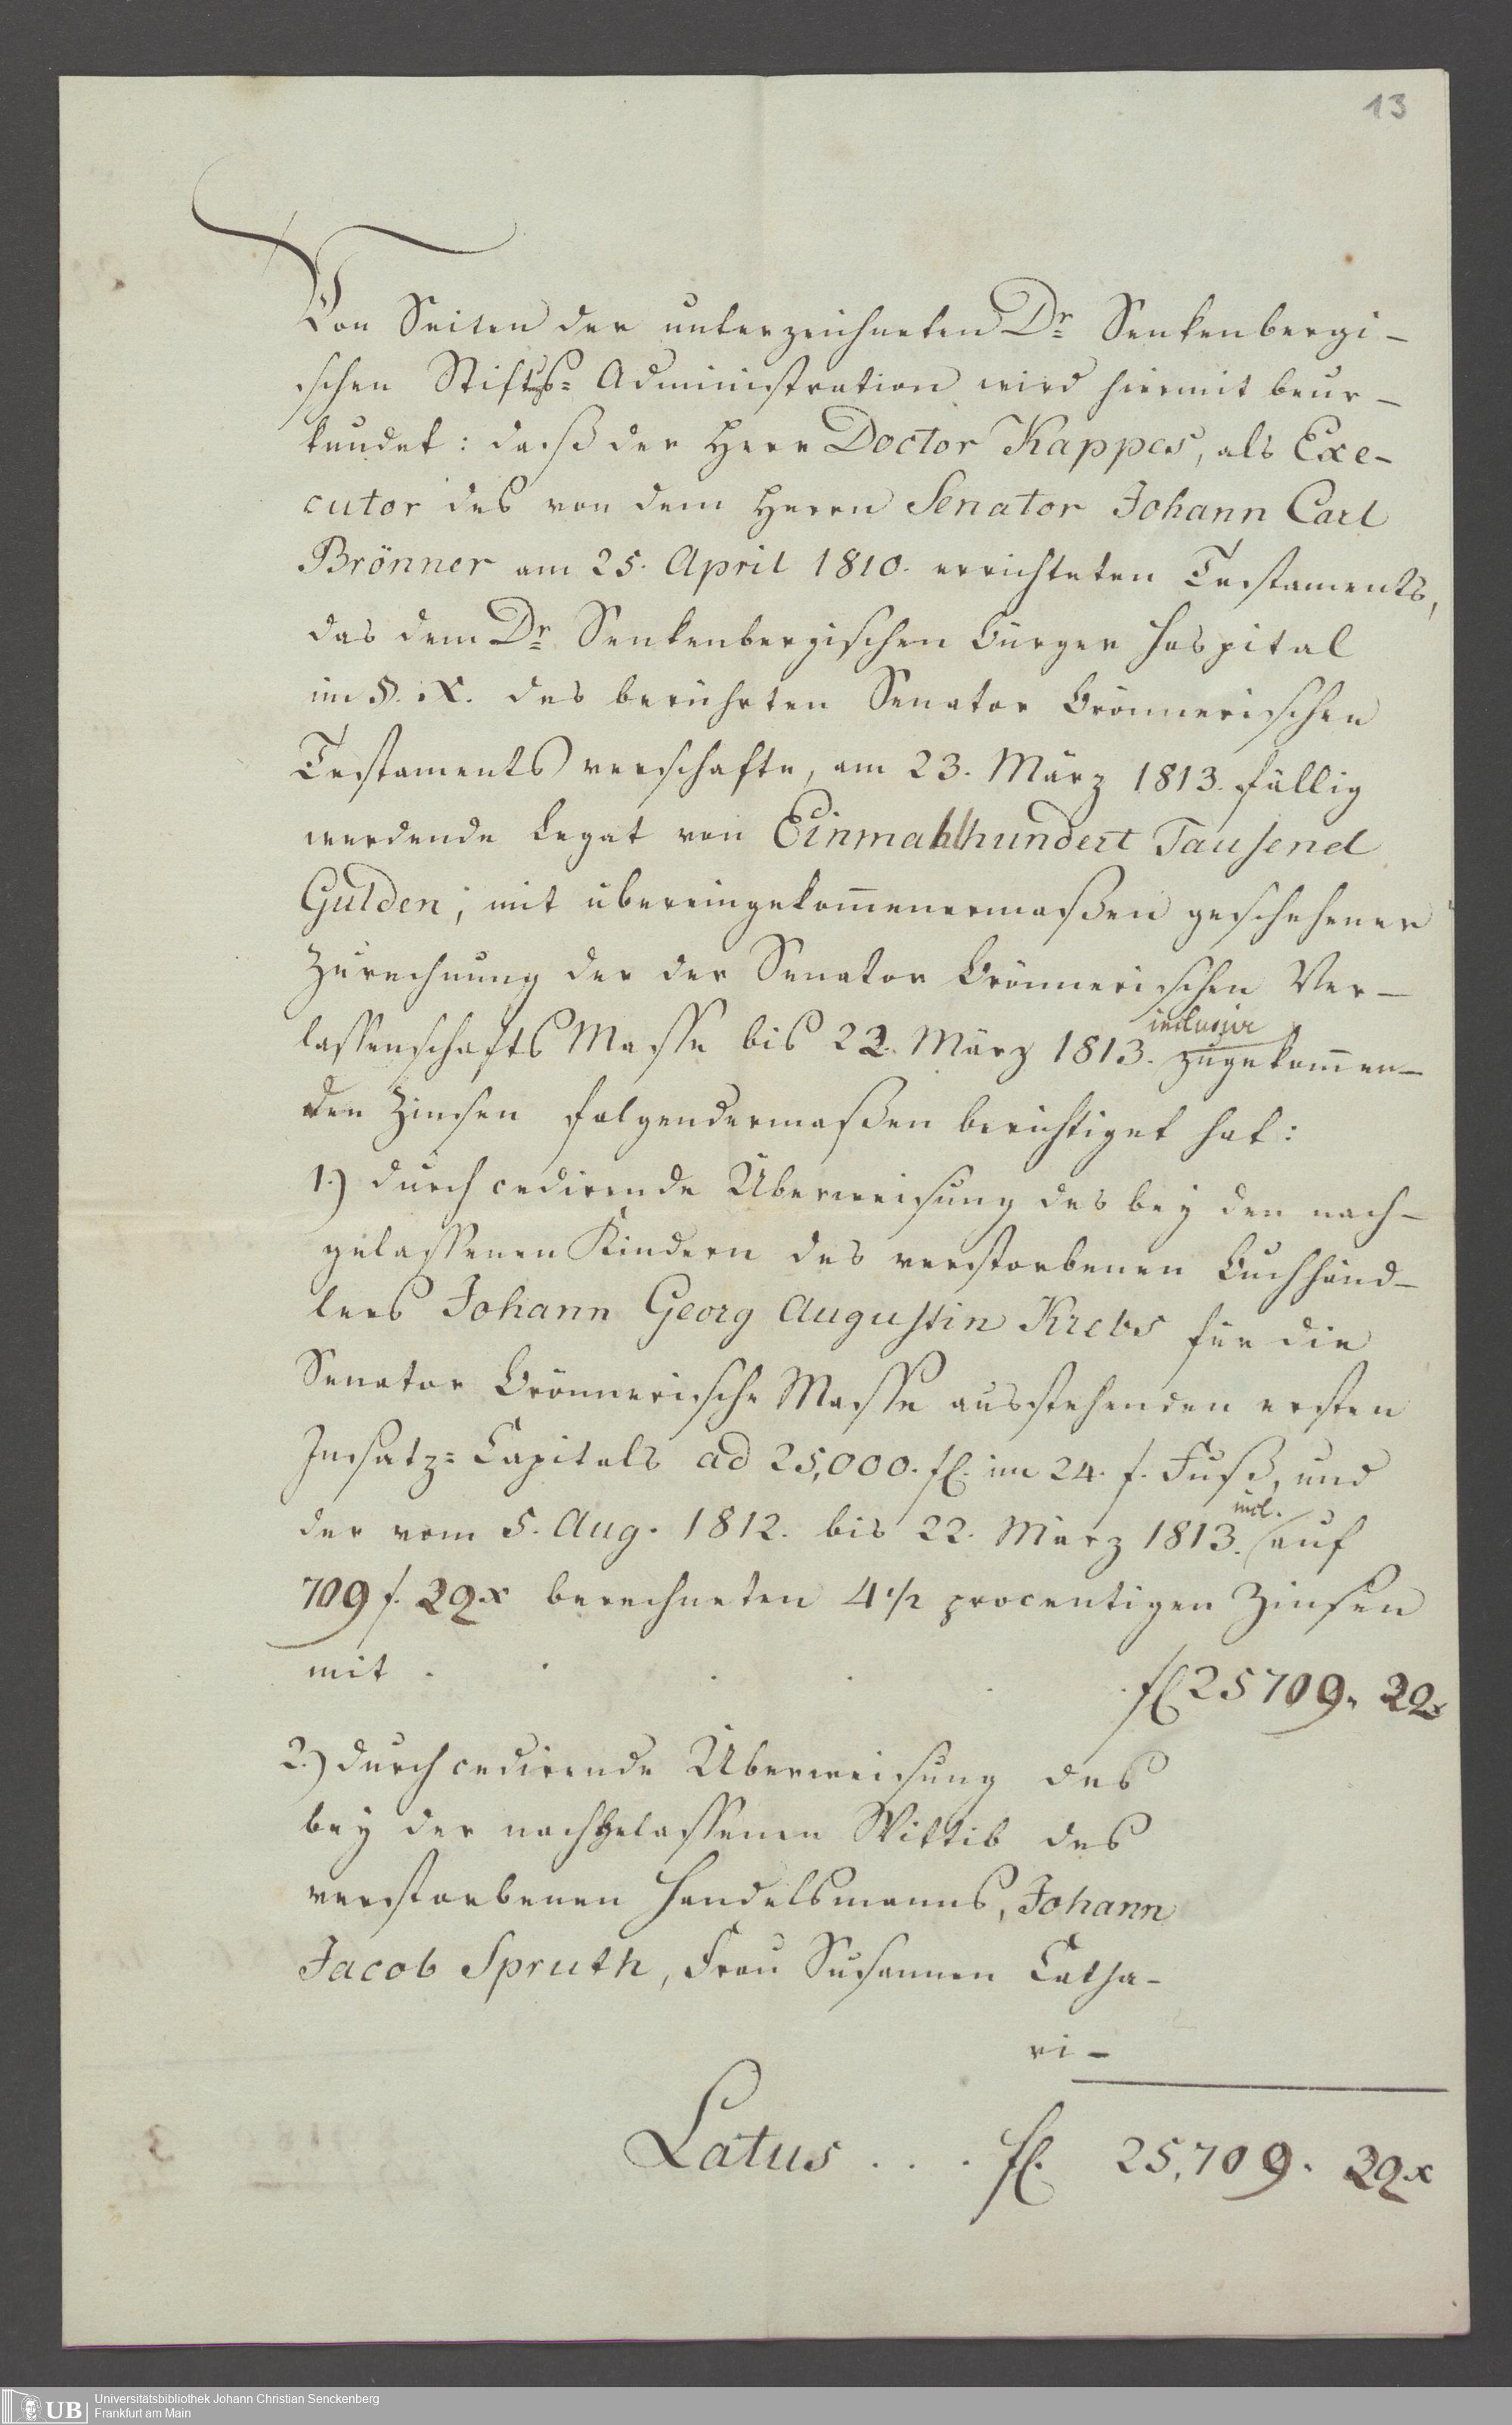 13
Von Seiten der unterzeichneten Dr Senkenbergi-
schen Stifts= Administration wird hiermit beur-
kundet: daß der Herr Doctor Kappes, als Exe-
cutor des von dem Herrn Senator Johann Carl
Brönner am 25. April 1810. errichteten Testaments,
das dem Dr Senkenbergischen Bürger Hospital
im §. IX. des berührten Senator Brönnerischen
Testaments verschafte, am 23. März 1813. fällig
werdende Legat von Einmahlhundert Tausend
Gulden; mit übereingekom̄enermaßen geschehener
Zurechnung der der Senator Brönnerischen Ver-
lassenschafts Masse bis 22. März 1813. inclusive zugekom̄en-
den Zinsen folgendermaßen berichtiget hat:
1.) durch cedirende Überweisung des bey den nach-
gelassenen Kindern des verstorbenen Buchhänd-
lers Johann Georg Augustin Krebs für die
Senator Brönnerische Masse ausstehenden ersten
Insatz= Capitals ad 25,000. fl. im 24. f. Fuß, und
der vom 5. Aug. 1812. bis 22. März 1813. incl. auf
709 f. 22 x berechneten 4 1/2 procentigen Zinsen
mit . . . . . . fl 25709. 22 x
2.) durch cedirende Überweisung des
bey der nachgelassenen Wittib des
verstorbenen Handelsmanns, Johann
Jacob Spruth, Frau Susannen Catha-
ri-
Latus . . . fl. 25,709. 22 x
UB
Universitätsbibliothek Johann Christian Senckenberg
Frankfurt am Main